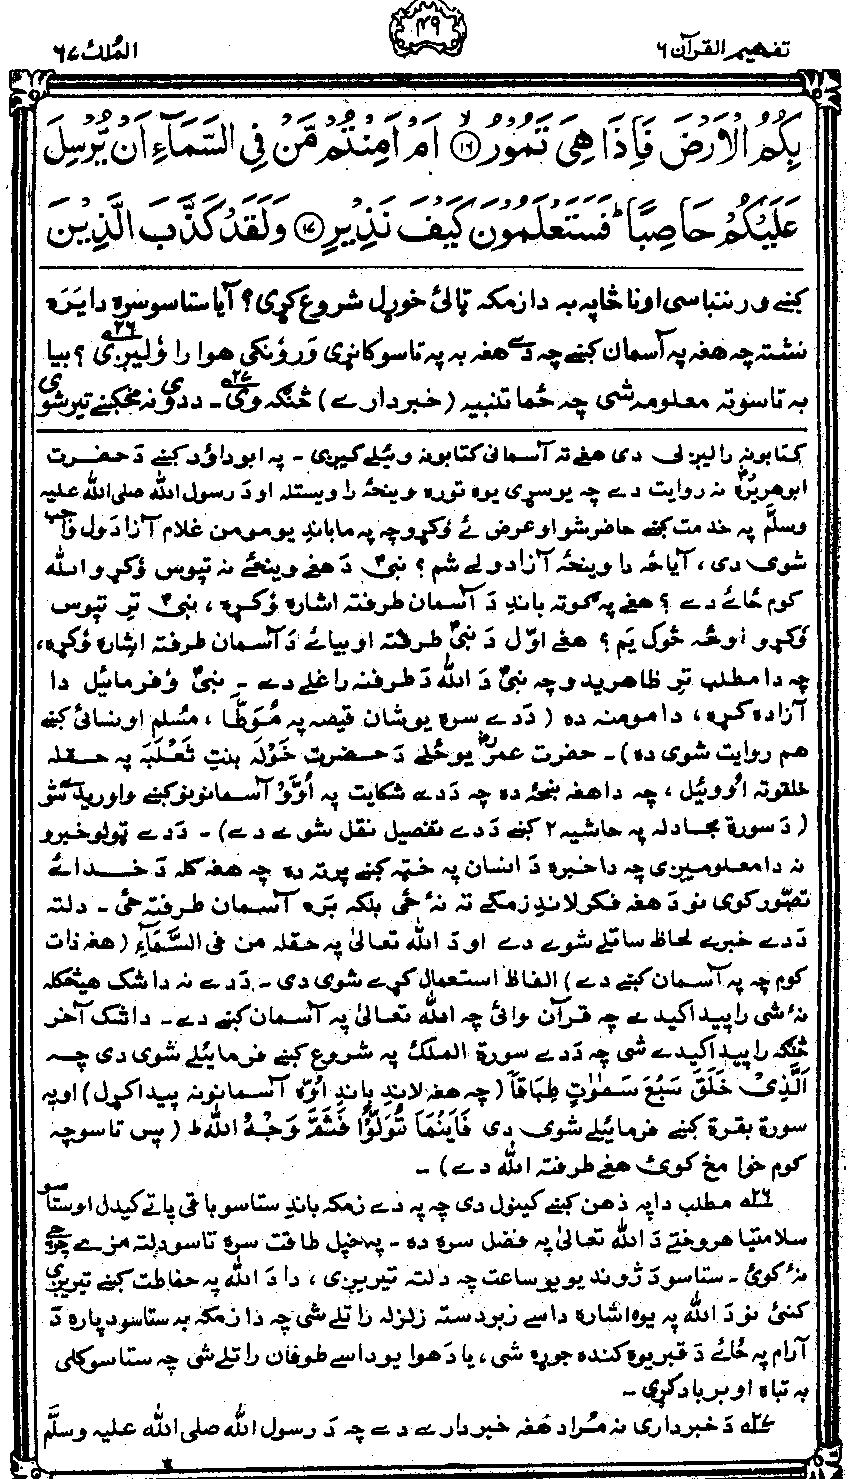 تفهیم القرآن ۶
۴۹
المُلک ۶۷
بِكُمُ الْاَرْضَ فَاِذَا هِیَ تَمُوْرُ ﴿۱۶﴾ اَمْ اَمِنْتُمْ مَّنْ فِی السَّمَآءِ اَنْ یُّرْسِلَ
عَلَیْكُمْ حَاصِبًا ؕ فَسَتَعْلَمُوْنَ كَیْفَ نَذِیْرِ ﴿۱۷﴾ وَلَقَدْ كَذَّبَ الَّذِیْنَ
کښے ورننباسی اونا څاپه به دا زمکه ټالئ خوړل شروع کړی؟ آیا ستاسو سره دا یَرَه
نشته چه هغه په آسمان کښے چه دے هغه به په تاسو کانړی وَرَوُنکی هوا را وُلیږی ۲۶؟ بیا
به تاسوته معلومه شی چه ځما تنبیه (خبردارے) څنګه وی ۲۷۔ ددوی نه مخکښے تیر شوی
کتابونه رالیږلی دی هغے ته آسمانی کتابونه وئیلے کیږی۔ په ابوداؤد کښے دَ حضرت
ابوهریرهؓ نه روایت دے چه یو سړی یوه توره وینځه را ویسته او دَ رسول الله صلی الله علیه
وسلّم په خدمت کښے حاضر شو او عرض ئے وُکړو چه په ما باندِ یو مومن غلام آزادول واجب
شوی دی، آیا ځه دا وینځه آزادولے شم؟ نبیؐ دَ هغے وینځے نه تپوس وُکړو الله
کوم ځائے دے؟ هغے په ګوته باندِ دَ آسمان طرفته اشاره وُکړه، نبیؐ ترِ تپوس
وُکړو اوځه څوک یَم؟ هغے اوّل دَ نبیؐ طرفته او بیائے دَ آسمان طرفته اشاره وُکړه،
چه دا مطلب ترِ ظاهریدو چه نبیؐ دَ الله دَ طرفته راغلے دے۔ نبیؐ وُفرمائیل دا
آزاده کړه، دا مومنه ده (دَدے سره یوشان قیصه په مُوَطّا، مُسلم او نسائی کښے
هم روایت شوی ده)۔ حضرت عمرؓ یوځلے دَ حضرت خَوْلَه بنتِ ثَعْلَبَه په حقله
خلقوته اووئیل، چه دا هغه ښځه ده چه دَدے شکایت په اُوَوْ آسمانونو کښے واوریدے شو
(دَ سورة مجادله په حاشیه ۲ کښے دَدے تفصیل نقل شوے دے)۔ دَدے ټولو خبرو
نه دا معلومیږی چه دا خبره دَ انسان په خټه کښے پرته ده چه هغه کله دَ خدائے
تصوّر کوی نو دَ هغه فکر لاندِ زمکے ته نهٔ ځی بلکه بَره آسمان طرفته ځی۔ دلته
دَدے خبرے لحاظ ساتلے شوے دے او دَ الله تعالیٰ په حقله من فی السَّمَآءِ (هغه ذات
کوم چه په آسمان کښے دے) الفاظ استعمال کړے شوی دی۔ دَدے نه دا شک هیڅکله
نهٔ شی را پیدا کیدے چه قرآن وائی چه الله تعالیٰ په آسمان کښے دے۔ دا شک آخر
څنګه را پیدا کیدے شی چه دَدے سورة الملک په شروع کښے فرمائیلے شوی دی چه
اَلَّذِیْ خَلَقَ سَبْعَ سَمٰوٰتٍ طِبَاقًا (چه هغه لاندِ باندِ اُوَوْه آسمانونه پیدا کړل) او په
سورة بقرة کښے فرمائیلے شوی دی فَاَیْنَمَا تُوَلُّوْا فَثَمَّ وَجْهُ اللهِ ط (پس تاسو چه
کوم خوا مخ کوئ هغے طرفته الله دے)۔
۲۶ مطلب دا په ذهن کښے کینول دی چه په دے زمکه باندِ ستاسو باقی پاتے کیدل او ستاسو
سلامتیا هر وخت دَ الله تعالیٰ په فضل سره ده۔ په خپل طاقت سره تاسو دلته مزے چرچے
نهٔ کوئ۔ ستاسو دَ ژوند یو یو ساعت چه دلته تیریږی، دا دَ الله په حفاظت کښے تیریږی
کنیِ نو دَ الله په یوه اشاره داسے زبردسته زلزله راتلے شی چه دا زمکه به ستاسو دپاره دَ
آرام په ځائے دَ قبر یوه کنده جوړه شی، یا دَ هوا یو داسے طوفان راتلے شی چه ستاسو کلی
به تباه او برباد کړی۔
۲۷ دَ خبرداری نه مُراد هغه خبردارے دے چه دَ رسول الله صلی الله علیه وسلّم